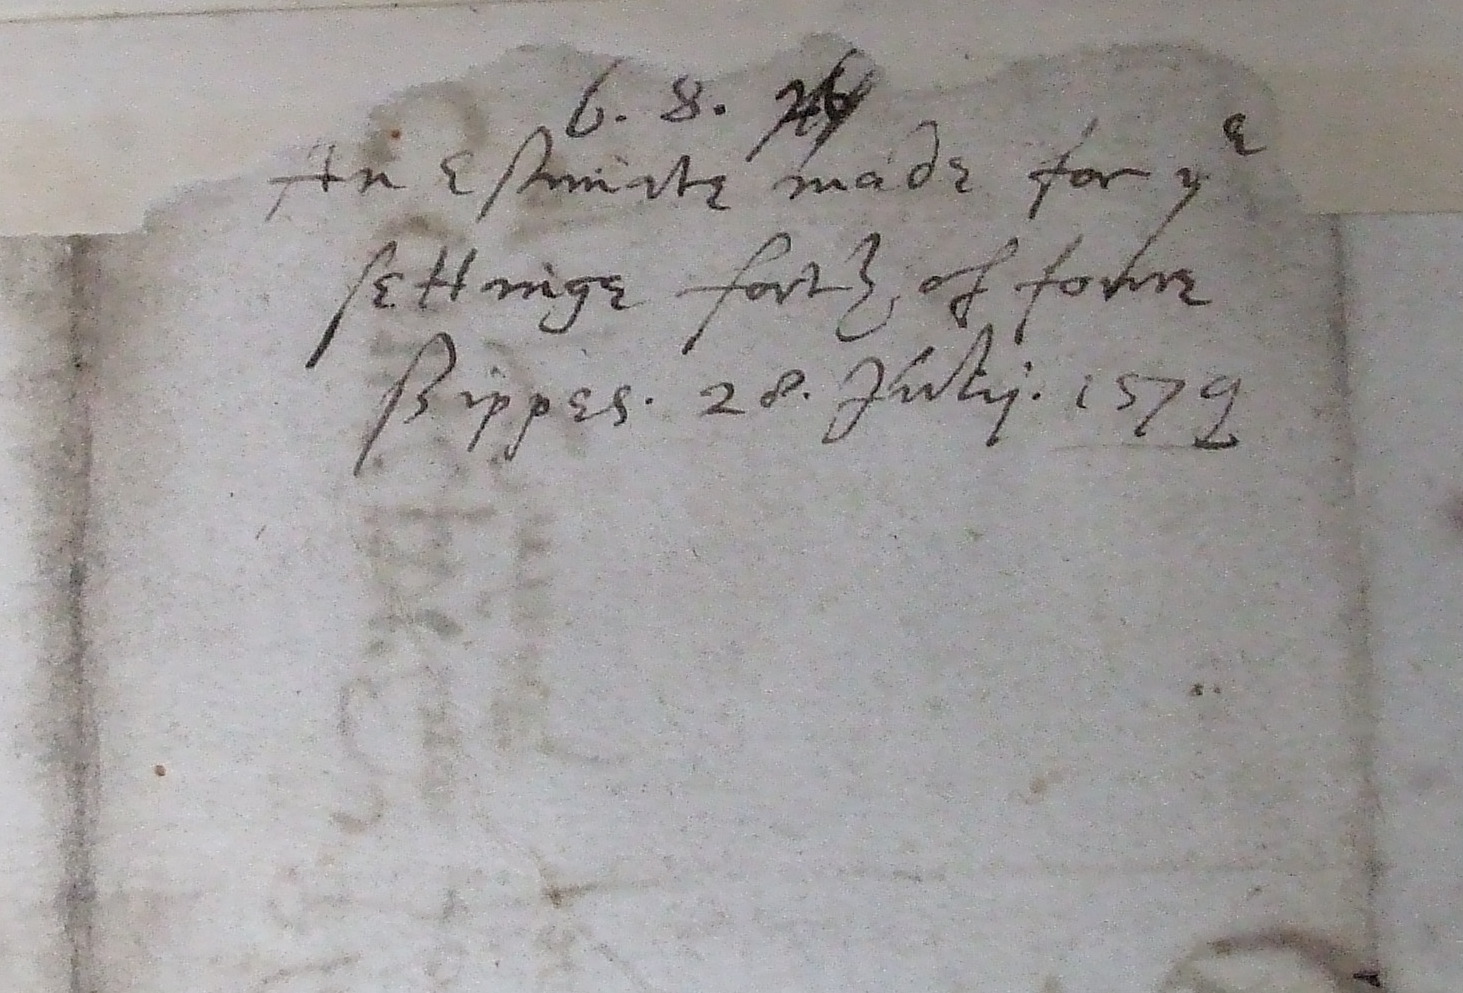 6. 8.
An Estimate made for yᵉ
settinge forth of fowre
shippes. 28. July. 1579